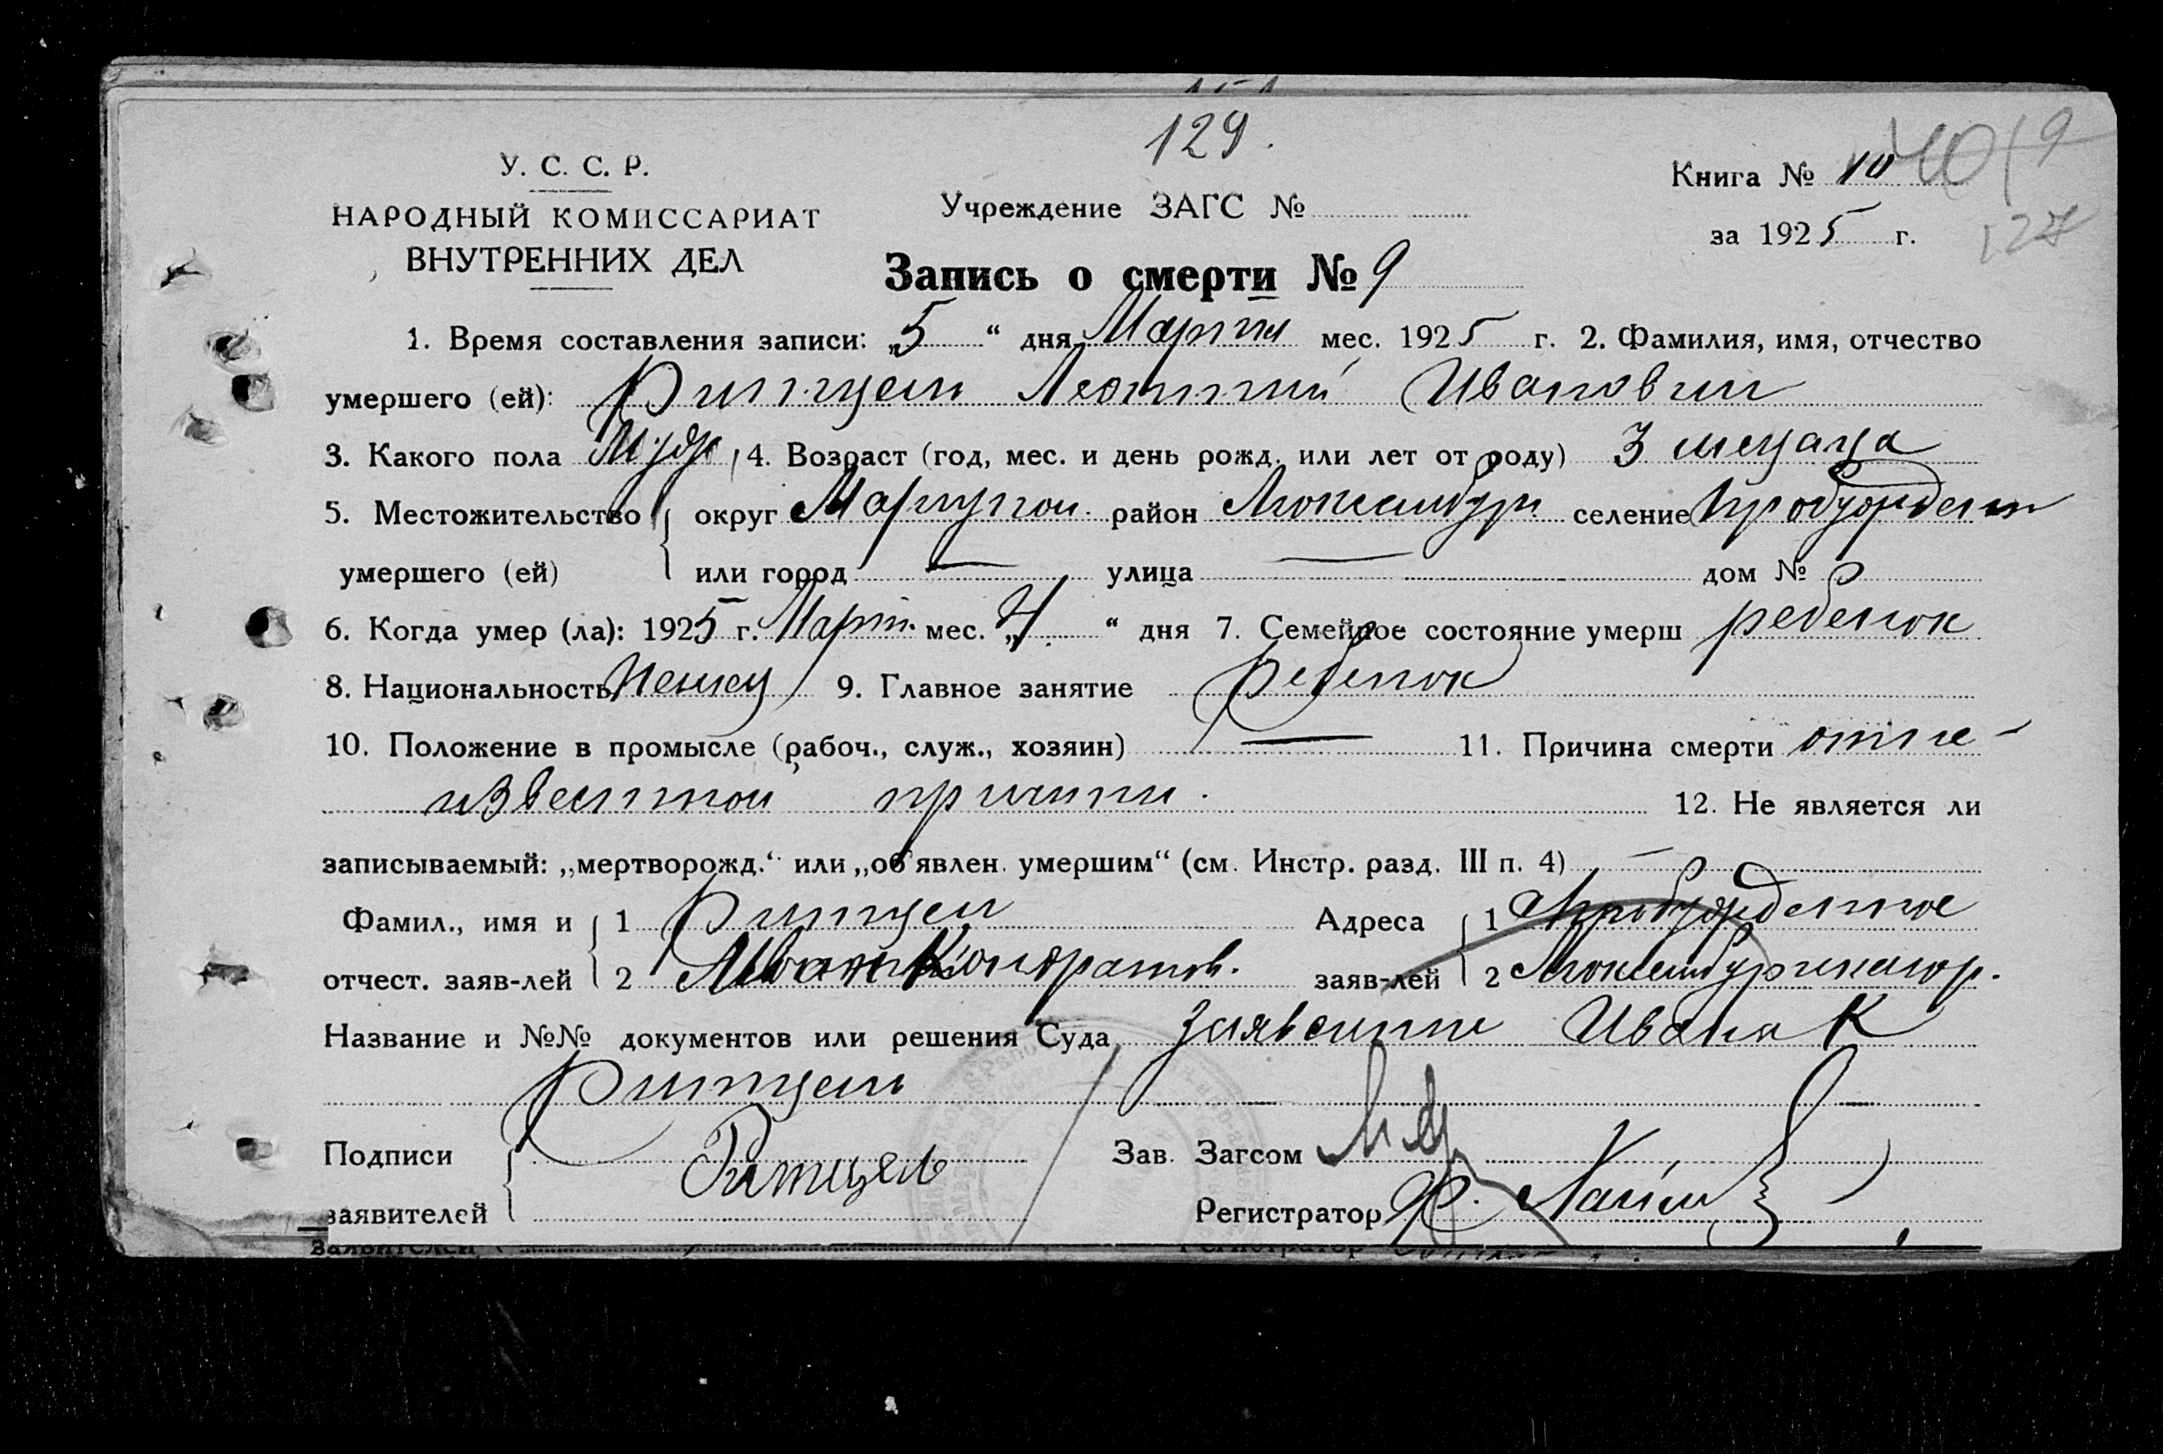 129.
У. С. С. Р.
НАРОДНЫЙ КОМИССАРИАТ
ВНУТРЕННИХ ДЕЛ
Учреждение ЗАГС №
Книга № 10
за 1925 г.
127
Запись о смерти № 9
1. Время составления записи: „5“ дня Марта мес. 1925 г. 2. Фамилия, имя, отчество
умершего (ей): Ритцель Леонтий Иванович
3. Какого пола Муж 4. Возраст (год, мес. и день рожд. или лет от роду) 3 месяца
5. Местожительство округ Мариупол. район Люксембург селение
умершего (ей) или город — улица — дом №
6. Когда умер (ла): 1925 г. Март. мес. „4“ дня 7. Семейное состояние умерш ребенок
8. Национальность Немец 9. Главное занятие ребенок
10. Положение в промысле (рабоч., служ., хозяин) — 11. Причина смерти от не-
известной причини.
12. Не является ли
записываемый: „мертворожд.“ или „об'явлен. умершим“ (см. Инстр. разд. III п. 4) —
Фамил., имя и 1 Ритцель Адреса 1
отчест. заяв-лей 2 Иван Кондратов. заяв-лей 2
Название и №№ документов или решения Суда заявление Ивана К
Ритцель
Подписи Ритцель Зав. Загсом
заявителей Регистратор